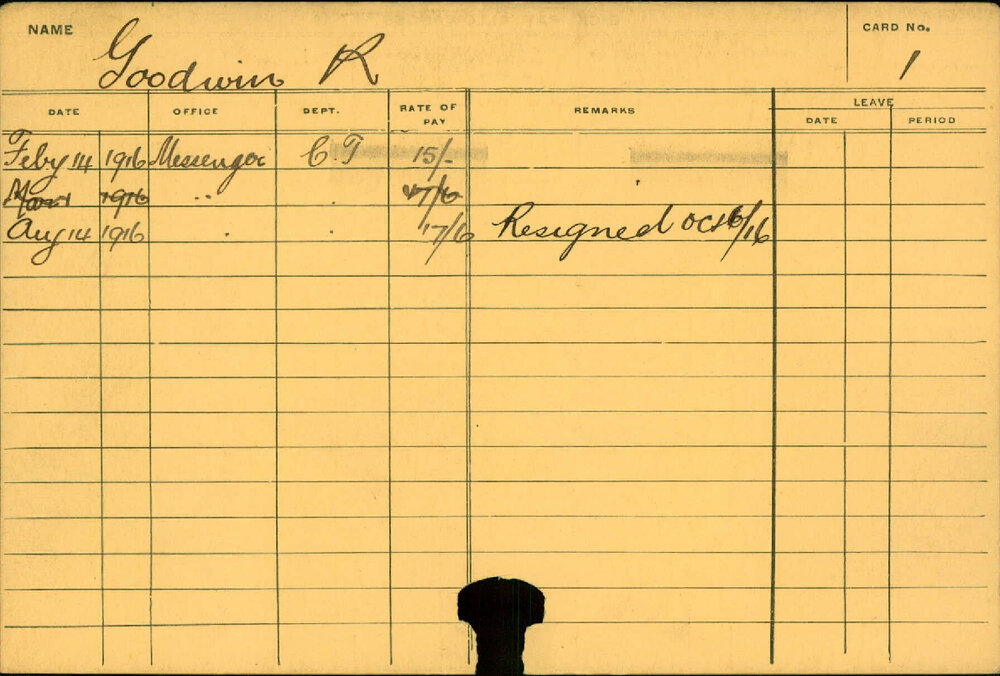 NAME Goodwin R CARD No. 1
DATE OFFICE DEPT. RATE OF PAY REMARKS LEAVE
DATE PERIOD
Feby 14 1916 Messenger C.F 15/-
1916 " . 17/6
Aug 14 1916 . . 17/6 Resigned Oct 6/16